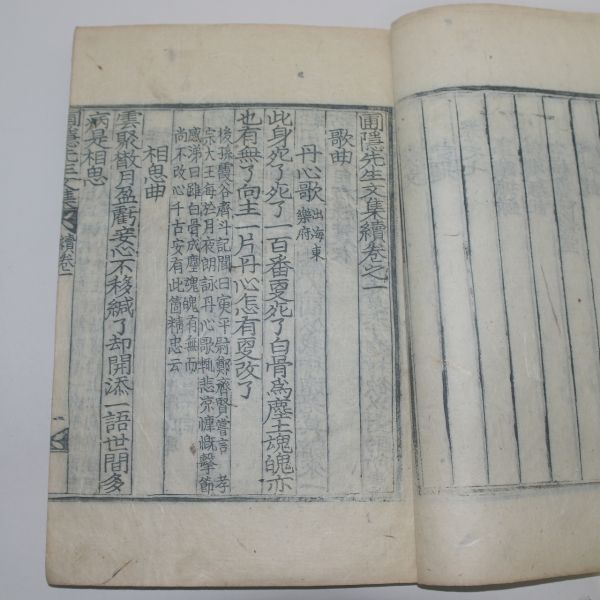 圃隱先生文集續卷之一
歌曲
丹心歌 出海東
樂府
此身死了死了一百番更死了白骨爲塵土魂魄亦
也有無了向主一片丹心怎有更改了
後孫霞谷齊斗記聞曰寅平尉鄭齊賢嘗言 孝
宗大王每於月夜朗詠丹心歌輒悲凉慷慨擊節
感涕曰雖白骨成塵魂魄有無而
尚不改心千古安有此箇精忠云
相思曲
雲聚散月盈虧妾心不移緘了却開添一語世間多
病是相思
圃隱先生文集 續卷一